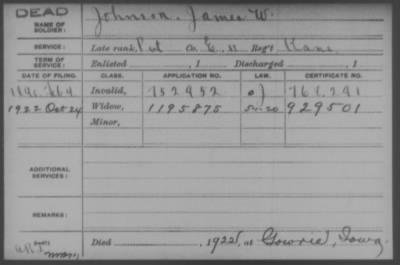 DEAD
NAME OF SOLDIER: Johnson, James W.
SERVICE: Late rank, Pvt Co E, 11 Reg't Kans.
TERM OF SERVICE: Enlisted , 1 Discharged , 1
DATE OF FILING. CLASS. APPLICATION NO. LAW. CERTIFICATE NO.
Invalid, 752952
1922 Oct 24 Widow, 1195875 5-1-20 929501
Minor,
ADDITIONAL SERVICES:
REMARKS:
Died , 1922, at Gowrie, Iowa